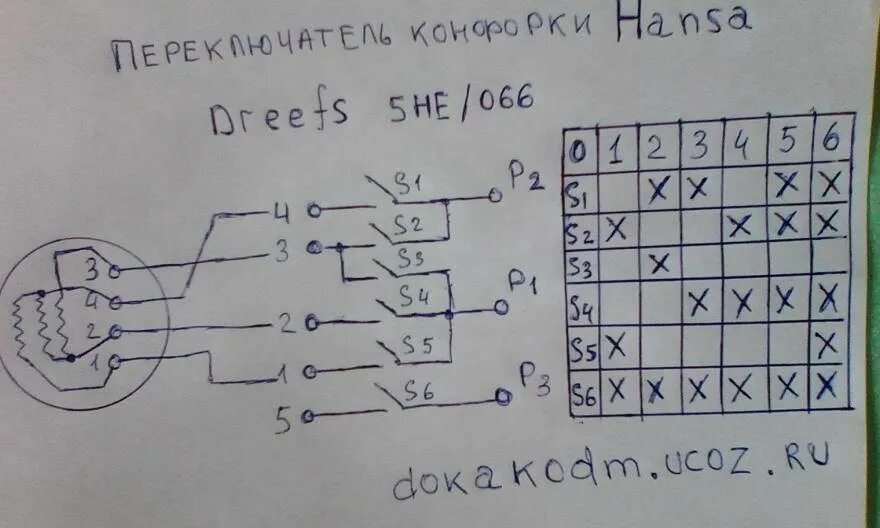 ПЕРЕКЛЮЧАТЕЛЬ КОНФОРКИ Hansa
Dreefs 5HE/066
0 1 2 3 4 5 6
S1 X X X X
S2 X X X X
S3 X
S4 X X X X
S5 X X
S6 X X X X X X
4 S1 P2
3 S2
S3
3
4 S4 P1
2 2
1 S5
1
S6 P3
5
dokakodm.ucoz.RU